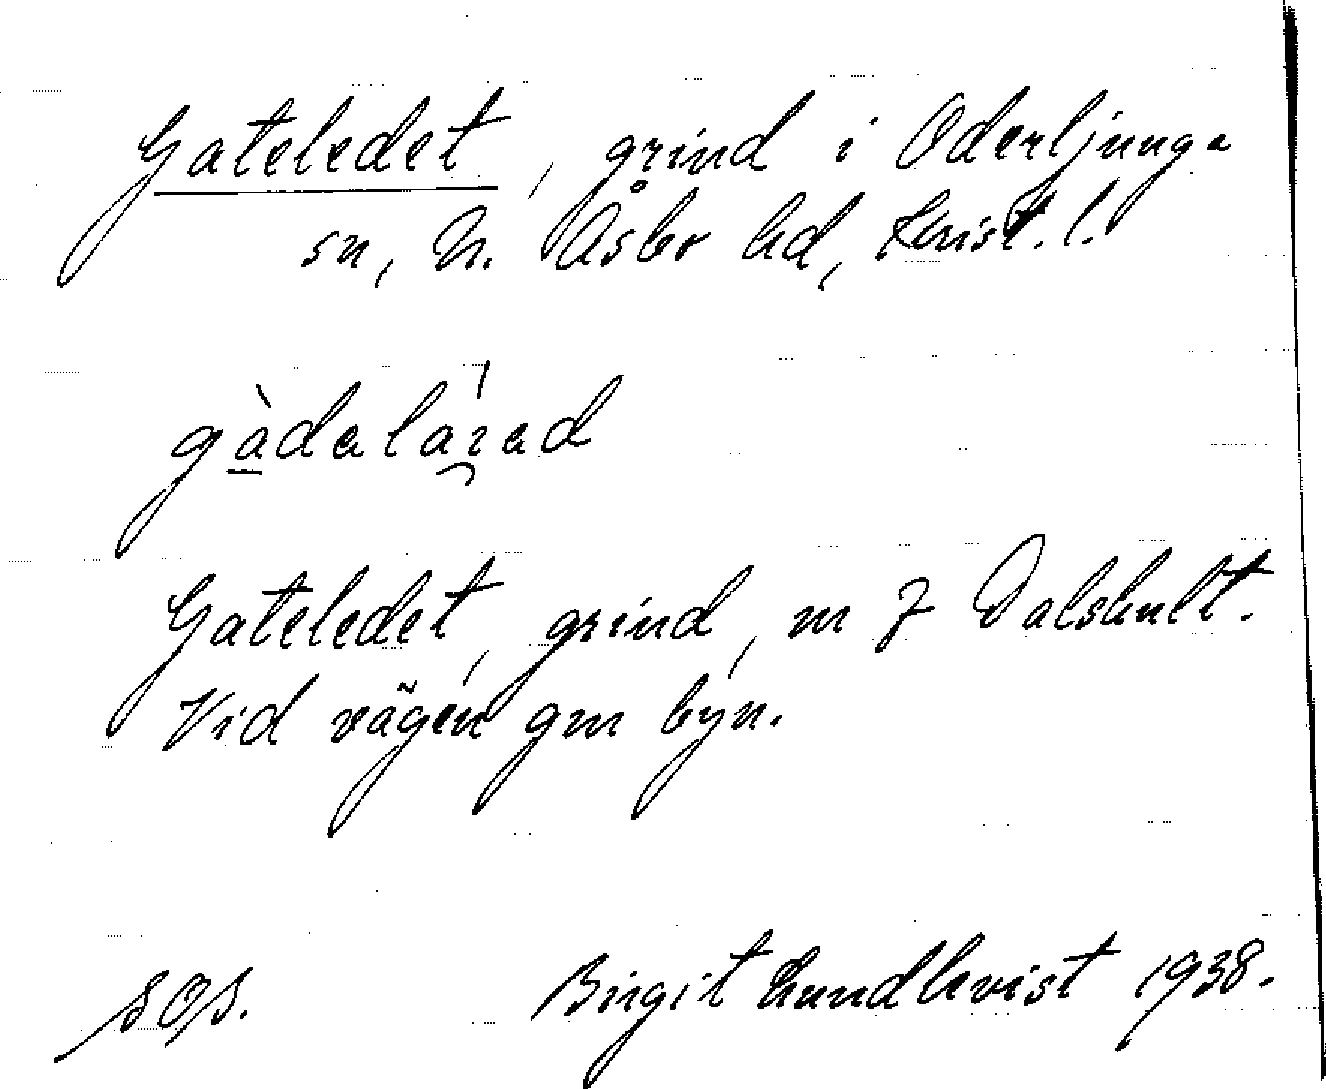 Gateledet, grind i Oderljunga
sn, N. Åsbo hd, Krist. l.
gàdalaıad
Gateledet, grind, m 7 Dalshult.
Vid vägen gm byn.
SOS. Birgit Lundkvist 1938.